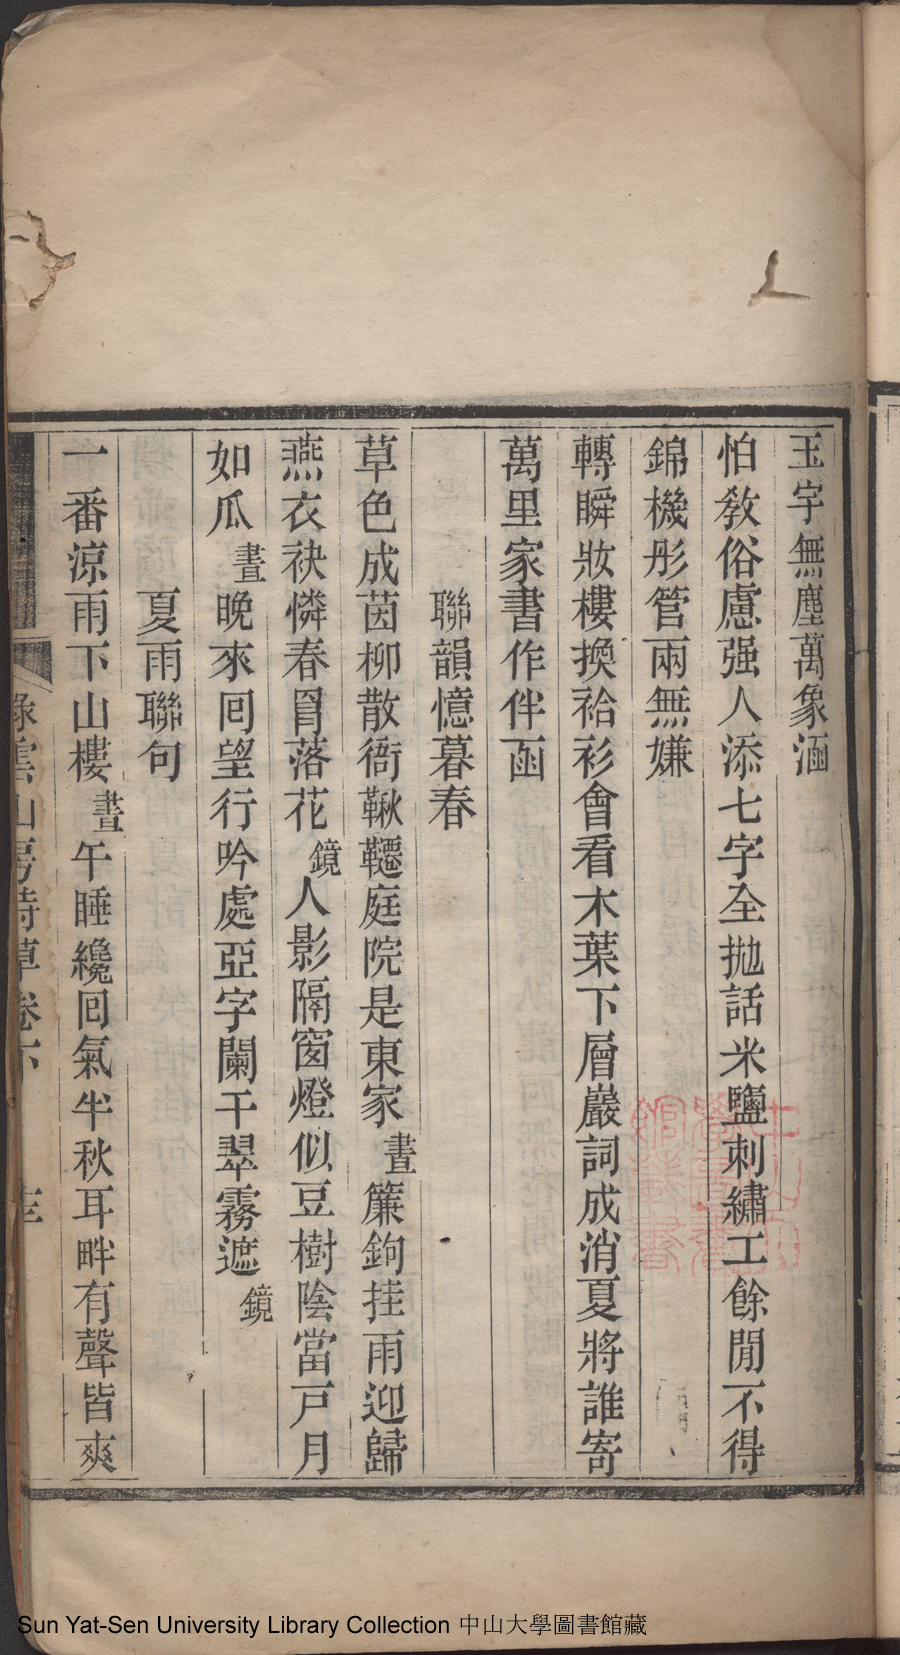 玉宇無塵萬象涵
怕敎俗慮强人添七字全拋話米鹽刺繡工餘閒不得
錦機彤管兩無嫌
轉瞬妝樓換袷衫會看木葉下層巖詞成消夏將誰寄
萬里家書作伴函
聯韻憶暮春
草色成茵柳散衙鞦韆庭院是東家晝簾鉤挂雨迎歸
燕衣袂憐春罥落花鏡人影隔窗燈似豆樹陰當戸月
如瓜晝晚來囘望行吟處亞字闌干翠霧遮鏡
夏雨聯句
一番涼雨下山樓晝午睡纔囘氣半秋耳畔有聲皆爽
雲山房詩草卷下
Sun Yat-Sen University Library Collection 中山大學圖書館藏